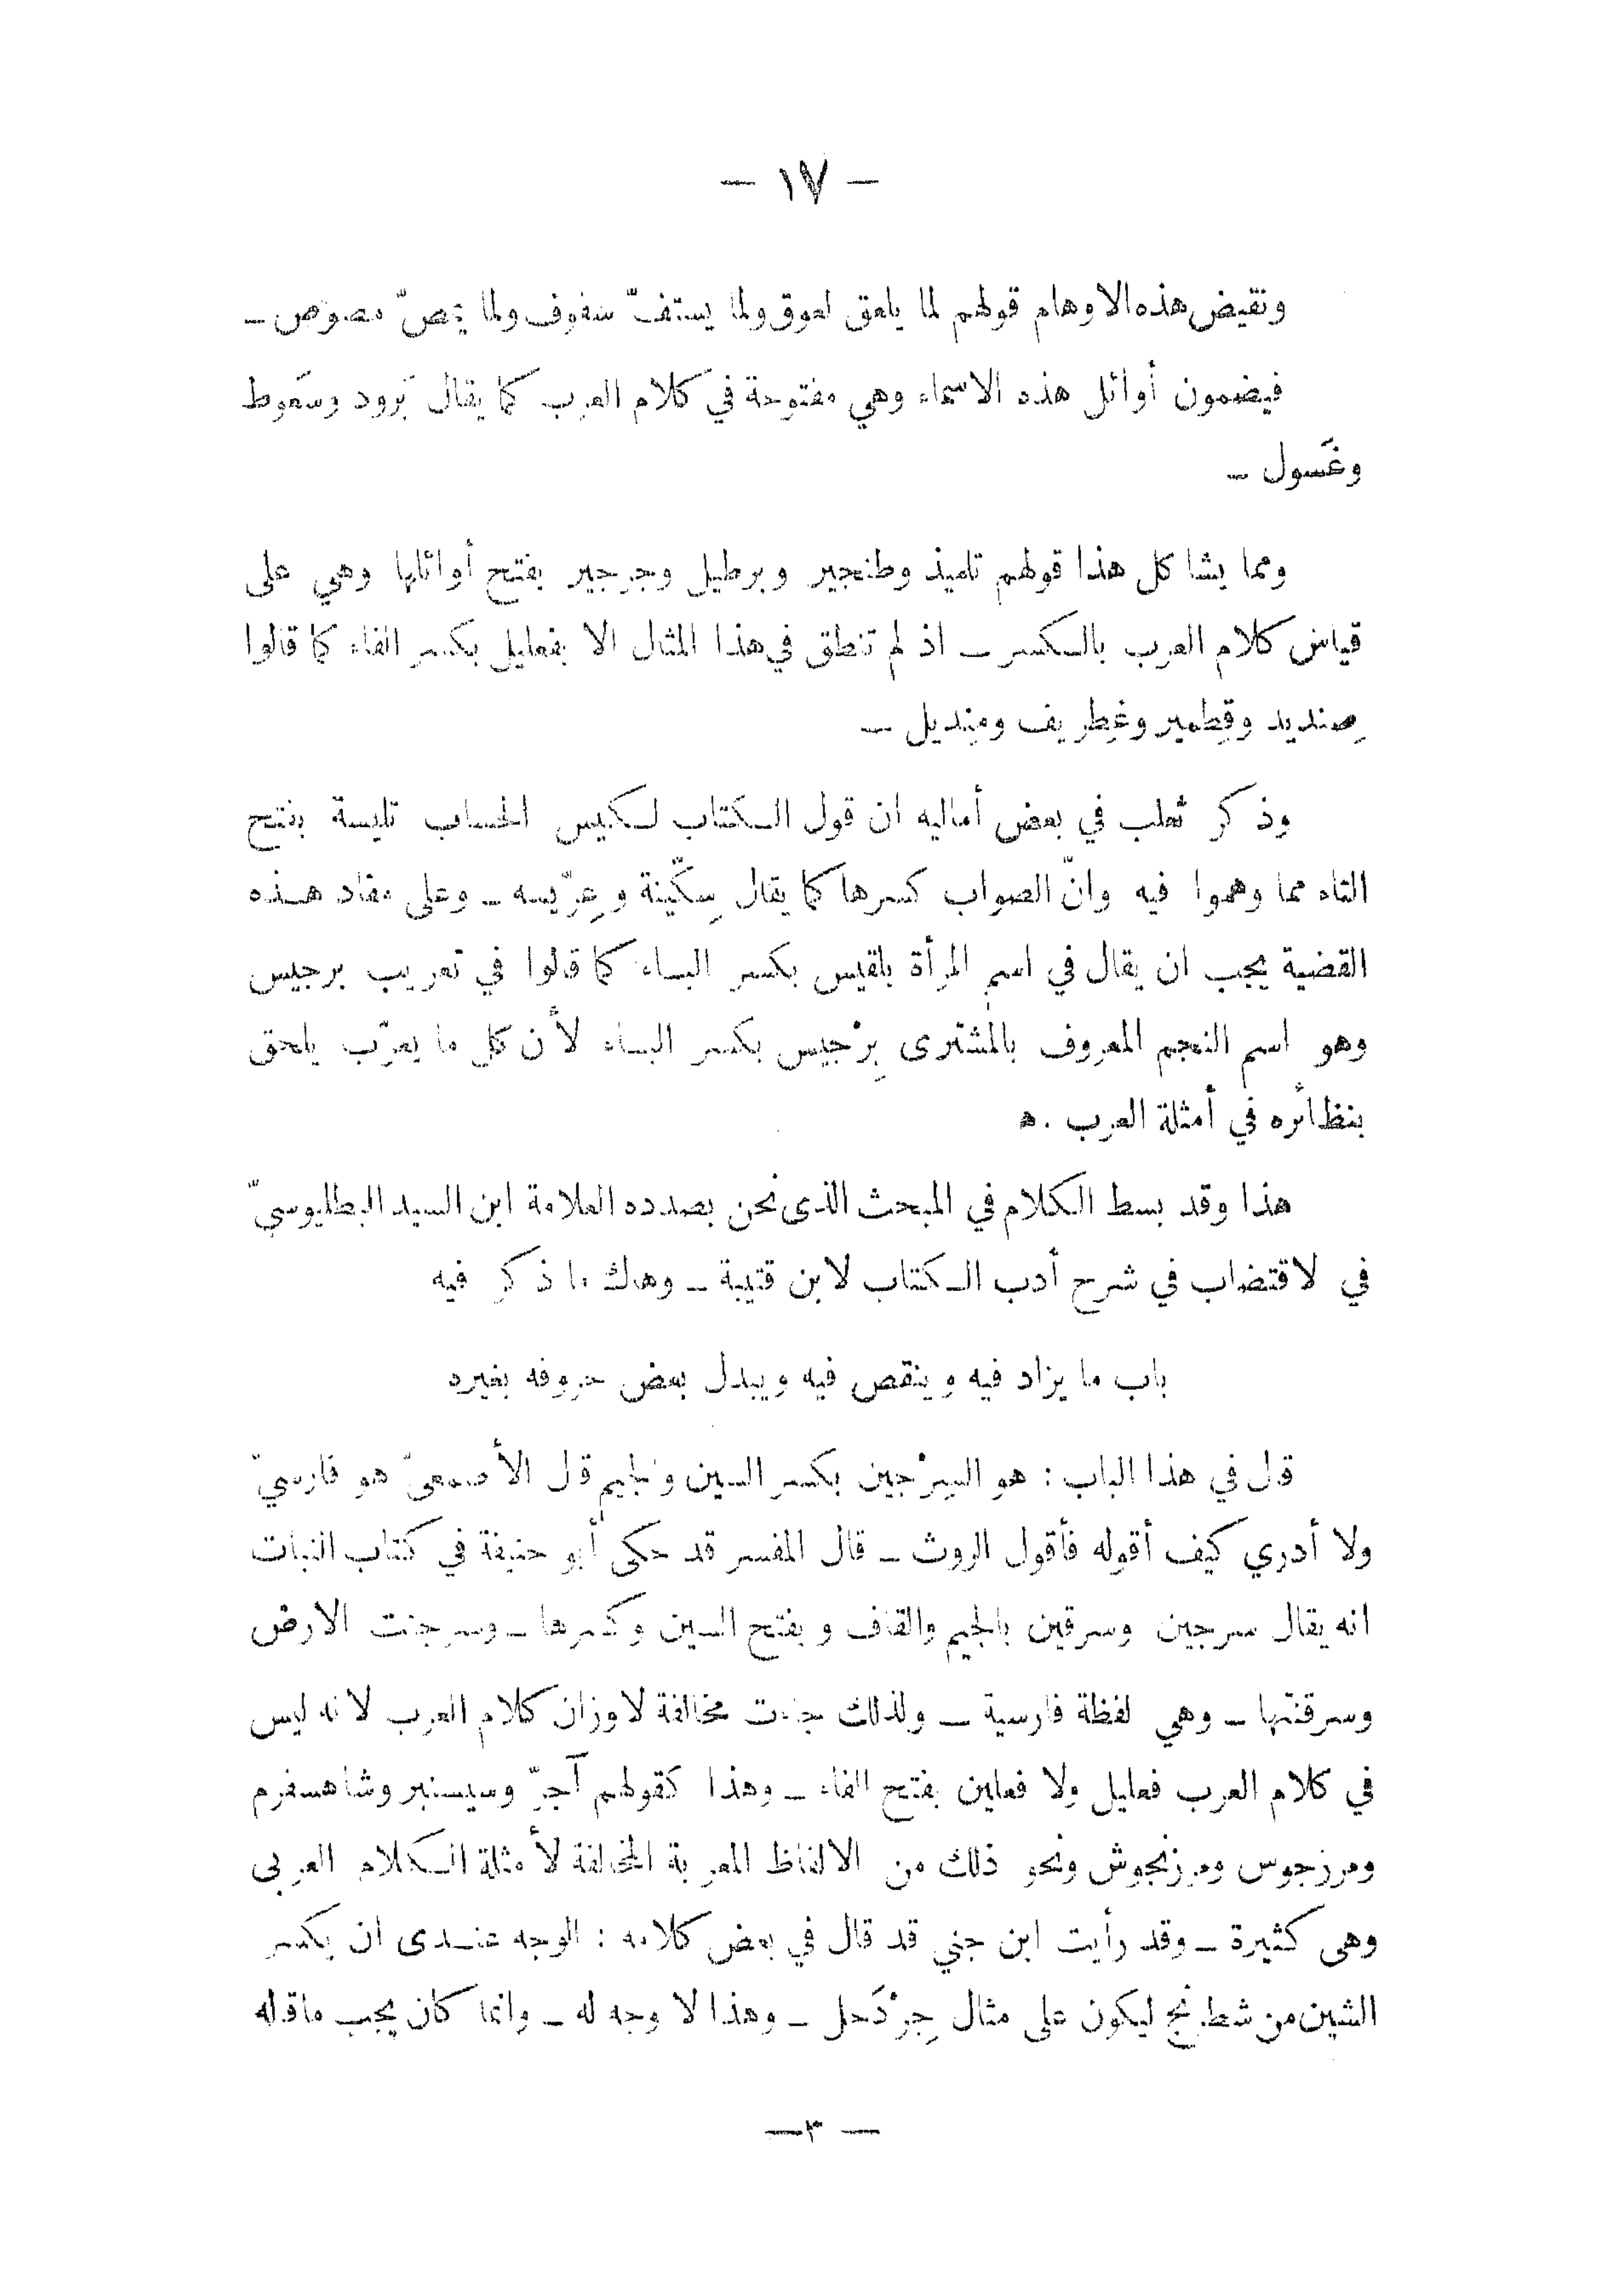 — ١٧ —
ونقيض هذه الاوهام قولهم لما يلعق لعوق ولما يستفّ سفوف ولما يمصّ مصوص ــ
فيضمون أوائل هذه الاسماء وهي مفتوحة في كلام العرب كما يقال بَرود وسَعوط
وغَسول ــ
ومما يشاكل هذا قولهم تلميذ وطنجير وبرطيل وجرجير بفتح أوائلها وهي على
قياس كلام العرب بالكسر ــ اذ لم تنطق في هذا المثال الا بفعليل بكسر الفاء كما قالوا
صِنديد وقِطمير وغِطريف ومِنديل ــ
وذكر ثعلب في بعض أماليه ان قول الكتاب لكيس الحساب تليسة بفتح
التاء مما وهموا فيه وانّ الصواب كسرها كما يقال سِكّينة وعِرّيسه ــ وعلى مفاد هذه
القضية يجب ان يقال في اسم المرأة بلقيس بكسر الباء كما قالوا في تعريب برجيس
وهو اسم النجم المعروف بالمشترى بِرْجيس بكسر الباء لأن كل ما يعرّب يلحق
بنظائره في أمثلة العرب . ه
هذا وقد بسط الكلام في المبحث الذى نحن بصدده العلامة ابن السيد البطليوسيّ
في لاقتضاب في شرح أدب الكتاب لابن قتيبة ــ وهاك ما ذكر فيه
باب ما يزاد فيه وينقص فيه ويبدل بعض حروفه بغيره
قال في هذا الباب : هو السِرْجين بكسر السين والجيم قال الأصمعىّ هو فارسيّ
ولا أدري كيف أقوله فأقول الروث ــ قال المفسر قد حكى أبو حنيفة في كتاب النبات
انه يقال سرجين وسرقين بالجيم والقاف وبفتح السين وكسرها ــ وسرجنت الارض
وسرقنتها ــ وهي لفظة فارسية ــ ولذلك جاءت مخالفة لاوزان كلام العرب لانه ليس
في كلام العرب فعليل ولا فعلين بفتح الفاء ــ وهذا كقولهم آجرّ وسيسنبر وشاهسفرم
ومرزجوس ومرزنجوش ونحو ذلك من الالفاظ المعربة المخالفة لأمثلة الكلام العربى
وهى كثيرة ــ وقد رأيت ابن جني قد قال في بعض كلامه : الوجه عندى ان يكسر
الشين من شطرنج ليكون على مثال جِرْدَحل ــ وهذا لا وجه له ــ وانما كان يجب ماقاله
— ٣ —